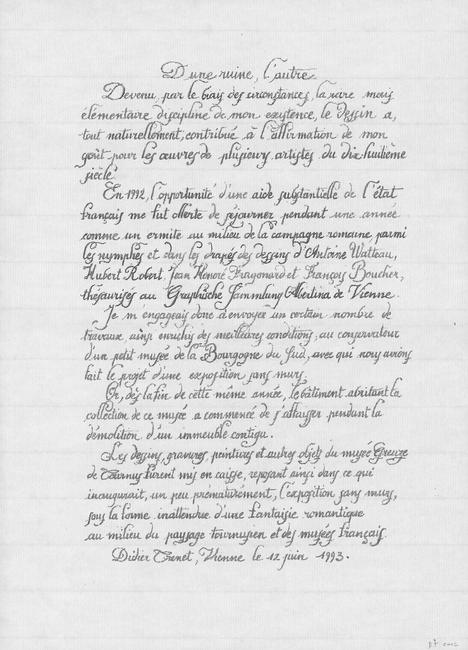 D'une ruine, l'autre.
Devenu, par le biais des circonstances, la rare mais
élémentaire discipline de mon existence, le Dessin a,
tout naturellement, contribué à l'affirmation de mon
goût pour les œuvres de plusieurs artistes du dix-huitième
siècle.
En 1992, l'opportunité d'une aide substantielle de l'état
français me fut offerte de séjourner pendant une année
comme un ermite au milieu de la campagne romaine, parmi
les nymphes et dans les drapés des dessins d'Antoine Watteau,
Hubert Robert, Jean Honoré Fragonard et François Boucher,
thésaurisés au Graphische Sammlung Albertina de Vienne.
Je m'engageais donc à envoyer un certain nombre de
travaux, ainsi enrichis des meilleures conditions, au conservateur
d'un petit musée de la Bourgogne du Sud, avec qui nous avions
fait le projet d'une exposition sans murs.
Or, dès la fin de cette même année, le bâtiment abritant la
collection de ce musé a commencé de s'affaisser pendant la
démolition d'un immeuble contigu.
Les dessins, gravures, peintures et autres objets du musée Greuze
de Tournus furent mis en caisse, reposant ainsi dans ce qui
inaugurait, un peu prématurément, l'exposition sans murs,
sous la forme inattendue d'une fantaisie romantique
au milieu du paysage tournusien et des musées français.
Didier Trenet, Vienne le 12 juin 1993.